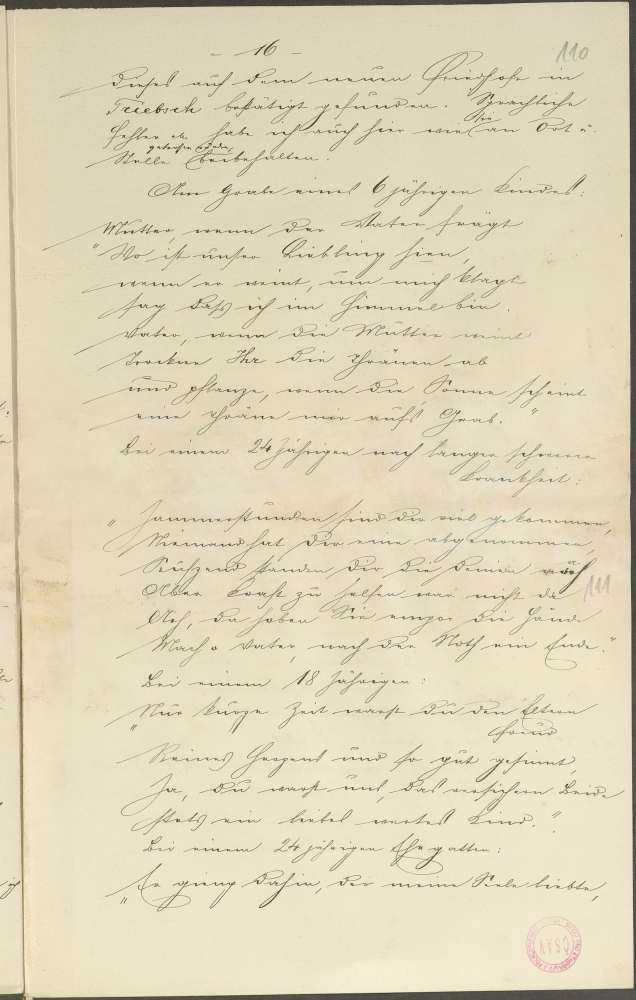 - 16 -
110
dieses auf dem neuen Friedhofe in
Triebsch bestätigt gefunden. Sprachliche
Fehler etc. habe ich auch hier wie sie an Ort u.
Stelle beibehalten.
Am Grabe eines 6 jährigen Kindes:
Mutter, wenn der Vater frägt
"Wo ist unser Liebling hin,
wenn er weint, um mich klagt
sag daß ich im Himmel bin.
Vater, wenn die Mutter weint
Trockne Ihr die Thränen ab
und pflanze, wenn die Sonne scheint
eine Thräne mir aufs Grab."
Bei einem 24 jährigen nach langer schwerer
Krankheit:
"Jammerstunden sind dir viel gekommen,
Niemand hat dir eine abgenommen,
Seufzend standen dir die deinen nah
Aber Kraft zu helfen war nicht da
111
Ach, da hoben Sie empor die Hände
Mach o Vater, nach der Noth ein Ende."
Bei einem 18 jährigen:
"Nur kurze Zeit warst du den Eltern
Freud
Reines Herzens und so gut gesinnt,
Ja, du warst uns, das versichern Beide
stets ein liebes wertes Kind."
Bei einem 24 jährigen Ehegatten:
"Er gieng dahin, der meine Seele liebte,